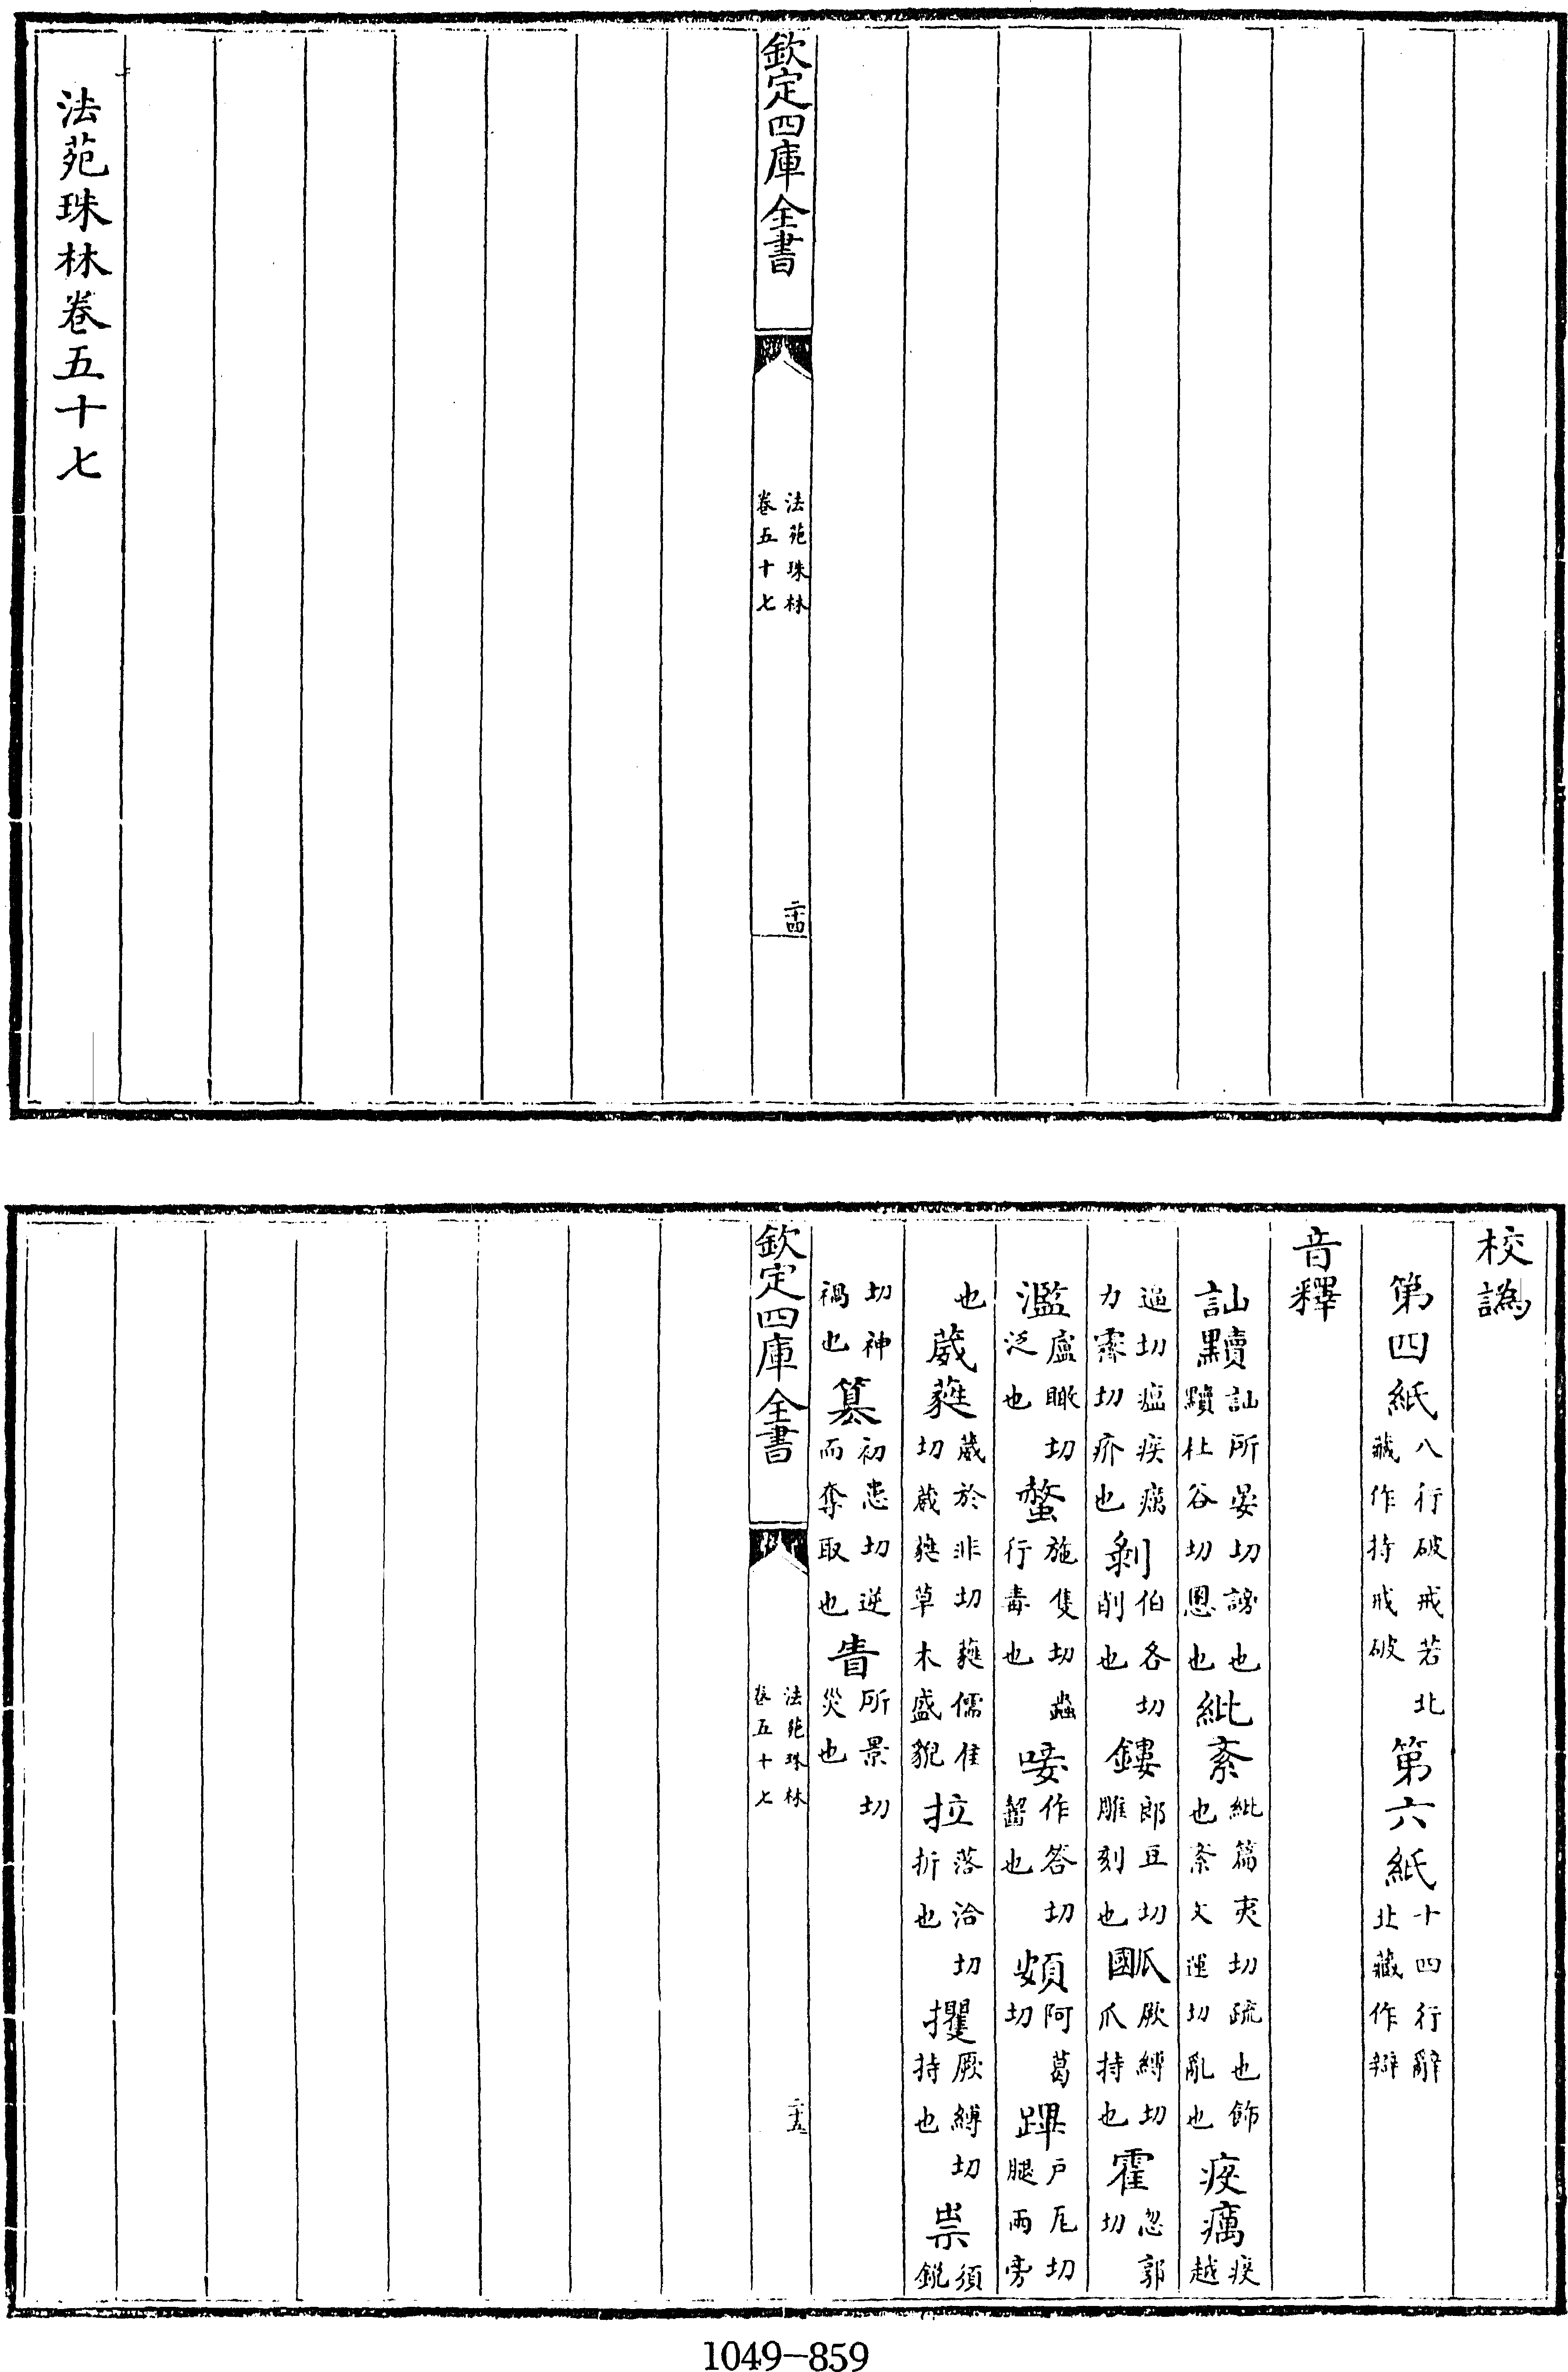 欽定四庫全書
法苑珠林
卷五十七
二十四
法苑珠林卷五十七
校譌
第四紙八行破戒若北藏作持戒破第六紙十四行辭北藏作辯
音釋
訕黷訕所晏切謗也黷杜谷切恩也紕紊紕篇夷切疏也飾也紊文運切亂也疫癘疫越
逼切瘟疾癘力霽切疥也剝伯各切削也鏤郎豆切雕刻也爴厥縛切爪持也霍忽郭切
濫盧瞰切泛也螫施隻切蟲行毒也唼作答切齧也頞阿葛切踝戶瓦切腿兩旁
也葳蕤葳於非切蕤儒隹切葳蕤草木盛貌拉落洽切折也攫厥縛切持也祟須銳
切神禍也篡初患切逆而奪取也眚所景切災也
欽定四庫全書
法苑珠林
卷五十七
二十五
1049-859